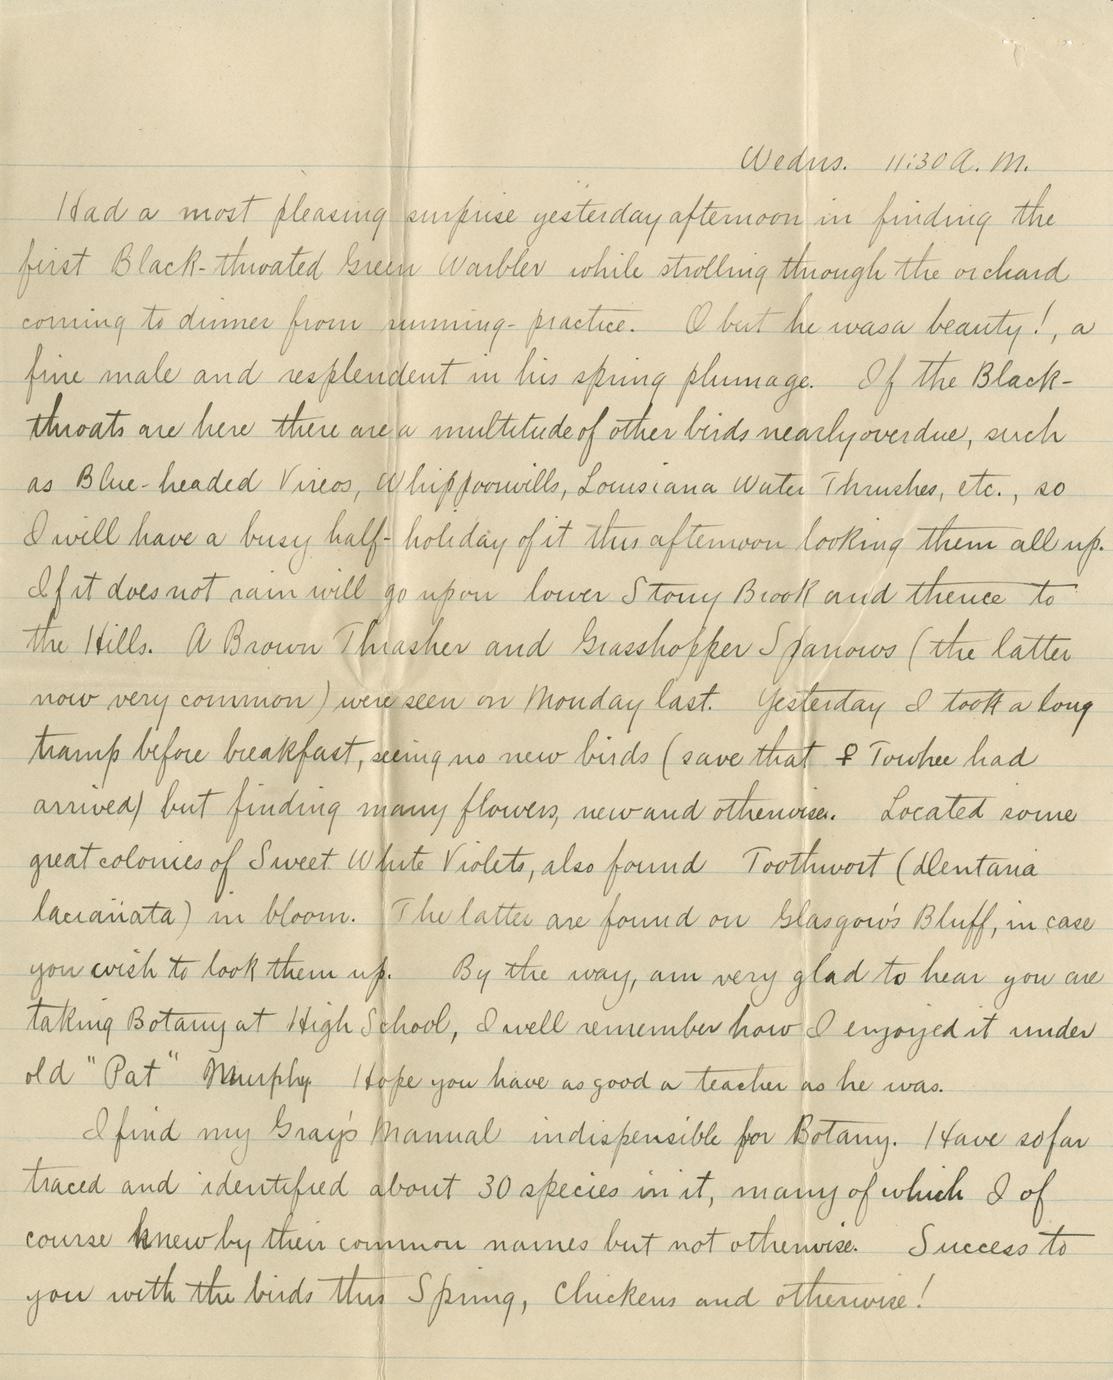 Wedns. 11:30 A. M.
Had a most pleasing surprise yesterday afternoon in finding the
first Black-throated Green Warbler while strolling through the orchard
coming to dinner from running-practice. O but he was a beauty!, a
fine male and resplendent in his spring plumage. If the Black-
throats are here there are a multitude of other birds nearly overdue, such
as Blue-headed Vireos, Whippoorwills, Louisiana Water Thrushes, etc., so
I will have a busy half-holiday of it this afternoon looking them all up.
If it does not rain will go upon lower Stony Brook and thence to
the Hills. A Brown Thrasher and Grasshopper Sparrows (the latter
now very common) were seen on Monday last. Yesterday I took a long
tramp before breakfast, seeing no new birds (save that ♀ Towhee had
arrived) but finding many flowers, new and otherwise. Located some
great colonies of Sweet White Violets, also found Toothwort (Dentaria
laciniata) in bloom. The latter are found on Glasgow's Bluff, in case
you wish to look them up. By the way, am very glad to hear you are
taking Botany at High School, I well remember how I enjoyed it under
old "Pat" Murphy. Hope you have as good a teacher as he was.
I find my Gray's Manual indispensible for Botany. Have so far
traced and identified about 30 species in it, many of which I of
course knew by their common names but not otherwise. Success to
you with the birds this Spring, Chickens and otherwise!